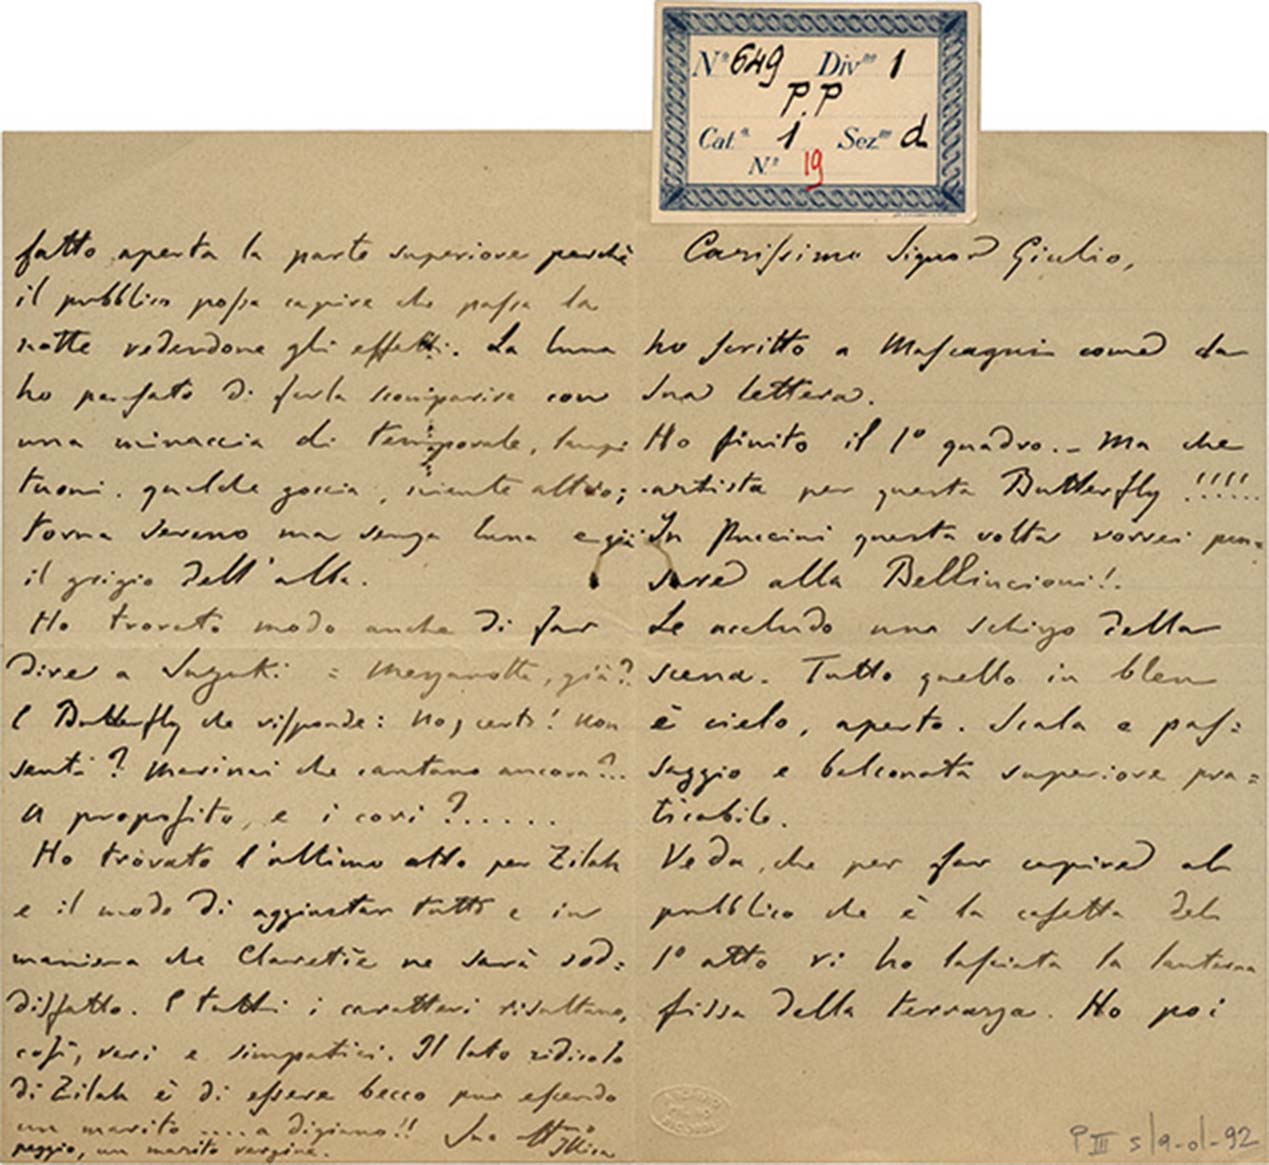 Nº 649 Divne 1
P.P
Cat.a 1 Sez.ne d
N.º 19
Carissimo Signor Giulio,
ho scritto a Mascagni come da
sua lettera.
Ho finito il 1º quadro. - Ma che
artista per questa Butterfly !!!!!..
In Puccini questa volta vorrei pen=
sare alla Bellincioni!.
Le accludo una schizzo della
scena. Tutto quello in bleu
è cielo, aperto. Scala e pas=
saggio e balconata superiore pra=
ticabile.
Veda, che per far capire al
pubblico che è la casetta del
1º atto vi ho lasciata la lanterna
fissa della terrazza. Ho poi
fatto aperta la parte superiore perchè
il pubblico possa capire che passa la
notte vedendone gli effetti. La luna
ho pensato di farla scomparire con
una minaccia di temporale, lampi
tuoni. qualche goccia, niente altro;
torna sereno ma senza luna e già
il grigio dell'alba.
Ho trovato modo anche di far
dire a Suzuki = Mezzanotte, già?
E Butterfly che risponde: No, certo! Non
senti? Marinai che cantano ancora?..
A proposito, e i cori?.....
Ho trovato l'ultimo atto per Zilah
e il modo di aggiustar tutto e in
maniera che Claretie ne sarà sod=
disfatto. E tutti i caratteri risultano,
così, veri e simpatici. Il lato ridicolo
di Zilah è di essere becco pur essendo
un marito .... a digiuno!! Suo affmo
peggio, un marito vergine. Illica
P III 5/9-01-92